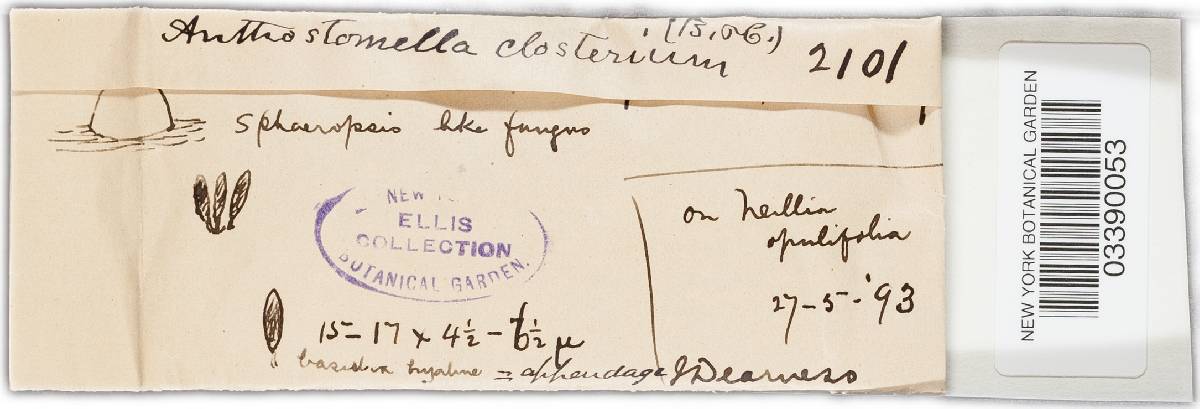 Anthostomella closterium (B. & C.) 2101
Sphaeropsis like fungus
NEW
ELLIS
COLLECTION
BOTANICAL GARDEN.
on Neillia
opulifolia
27-5-'93
15-17 x 4½-6½ µ
basidia hyaline = appendage
J Dearness
NEW YORK BOTANICAL GARDEN
03390053